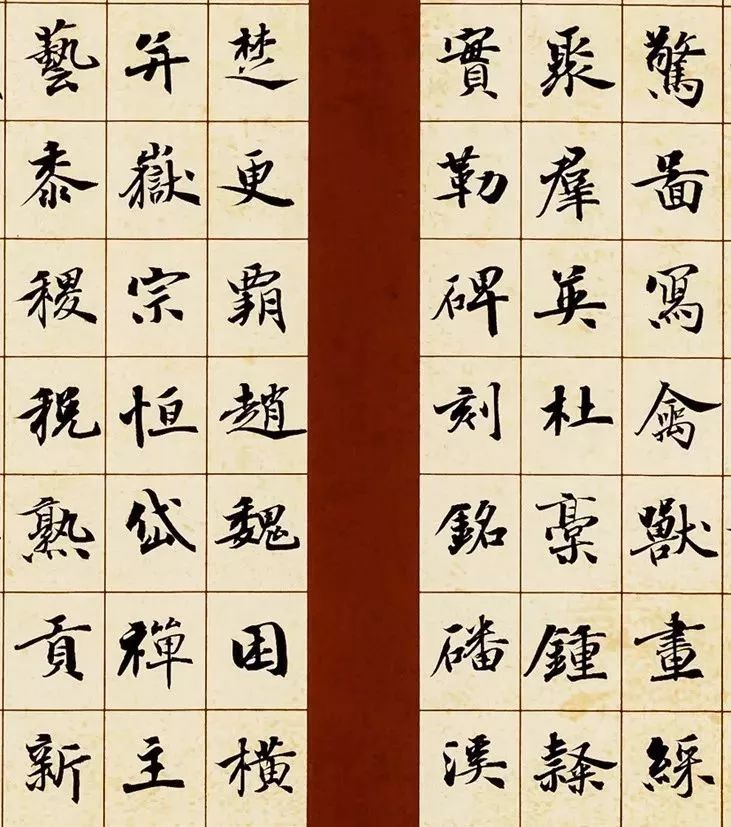 驚啚冩禽獸畫綵
聚羣英杜稾鍾隸
實勒碑刻銘磻溪
楚更覇趙魏困橫
并嶽宗恒岱禪主
藝黍稷稅熟貢新